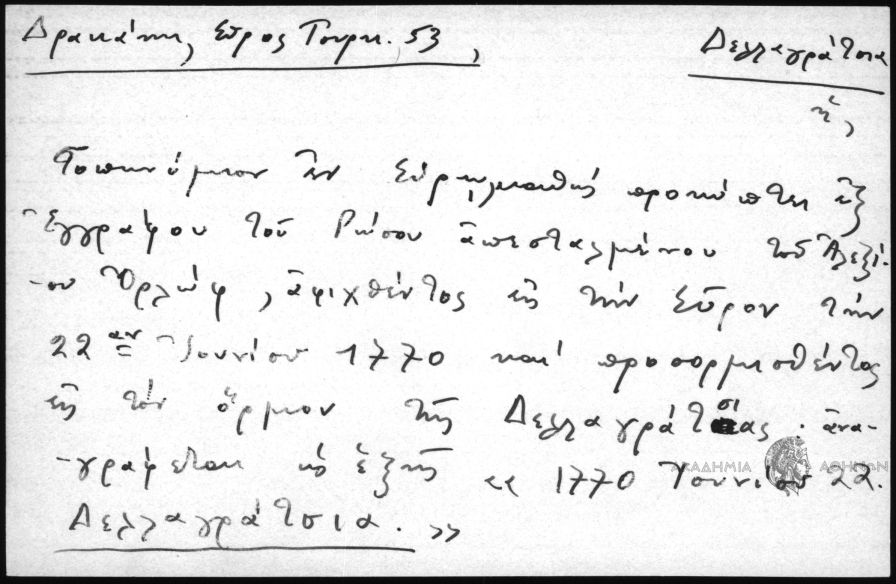 Δρακάκη, Σῦρος Τουρκ. 53,
Δελλαγράτσια
ἡ,
Τοπωνύμιον ἐν Σύρῳ, προκύπτει ἐξ
Ἐγγράφου τοῦ Ρώσου ἀπεσταλμένου τοῦ Ἀλεξί-
-ου Ὀρλώφ, ἀφιχθέντος εἰς τὴν Σῦρον τὴν
22αν Ἰουνίου 1770 καὶ προσορμισθέντος
εἰς τὸν ὅρμον τῆς Δελλαγράτσιας. ἀνα-
-γράφεται ὡς ἑξῆς «1770 Ἰουνίου 22.
Δελλαγράτσια.»
ΑΚΑΔΗΜΙΑ ΑΘΗΝΩΝ